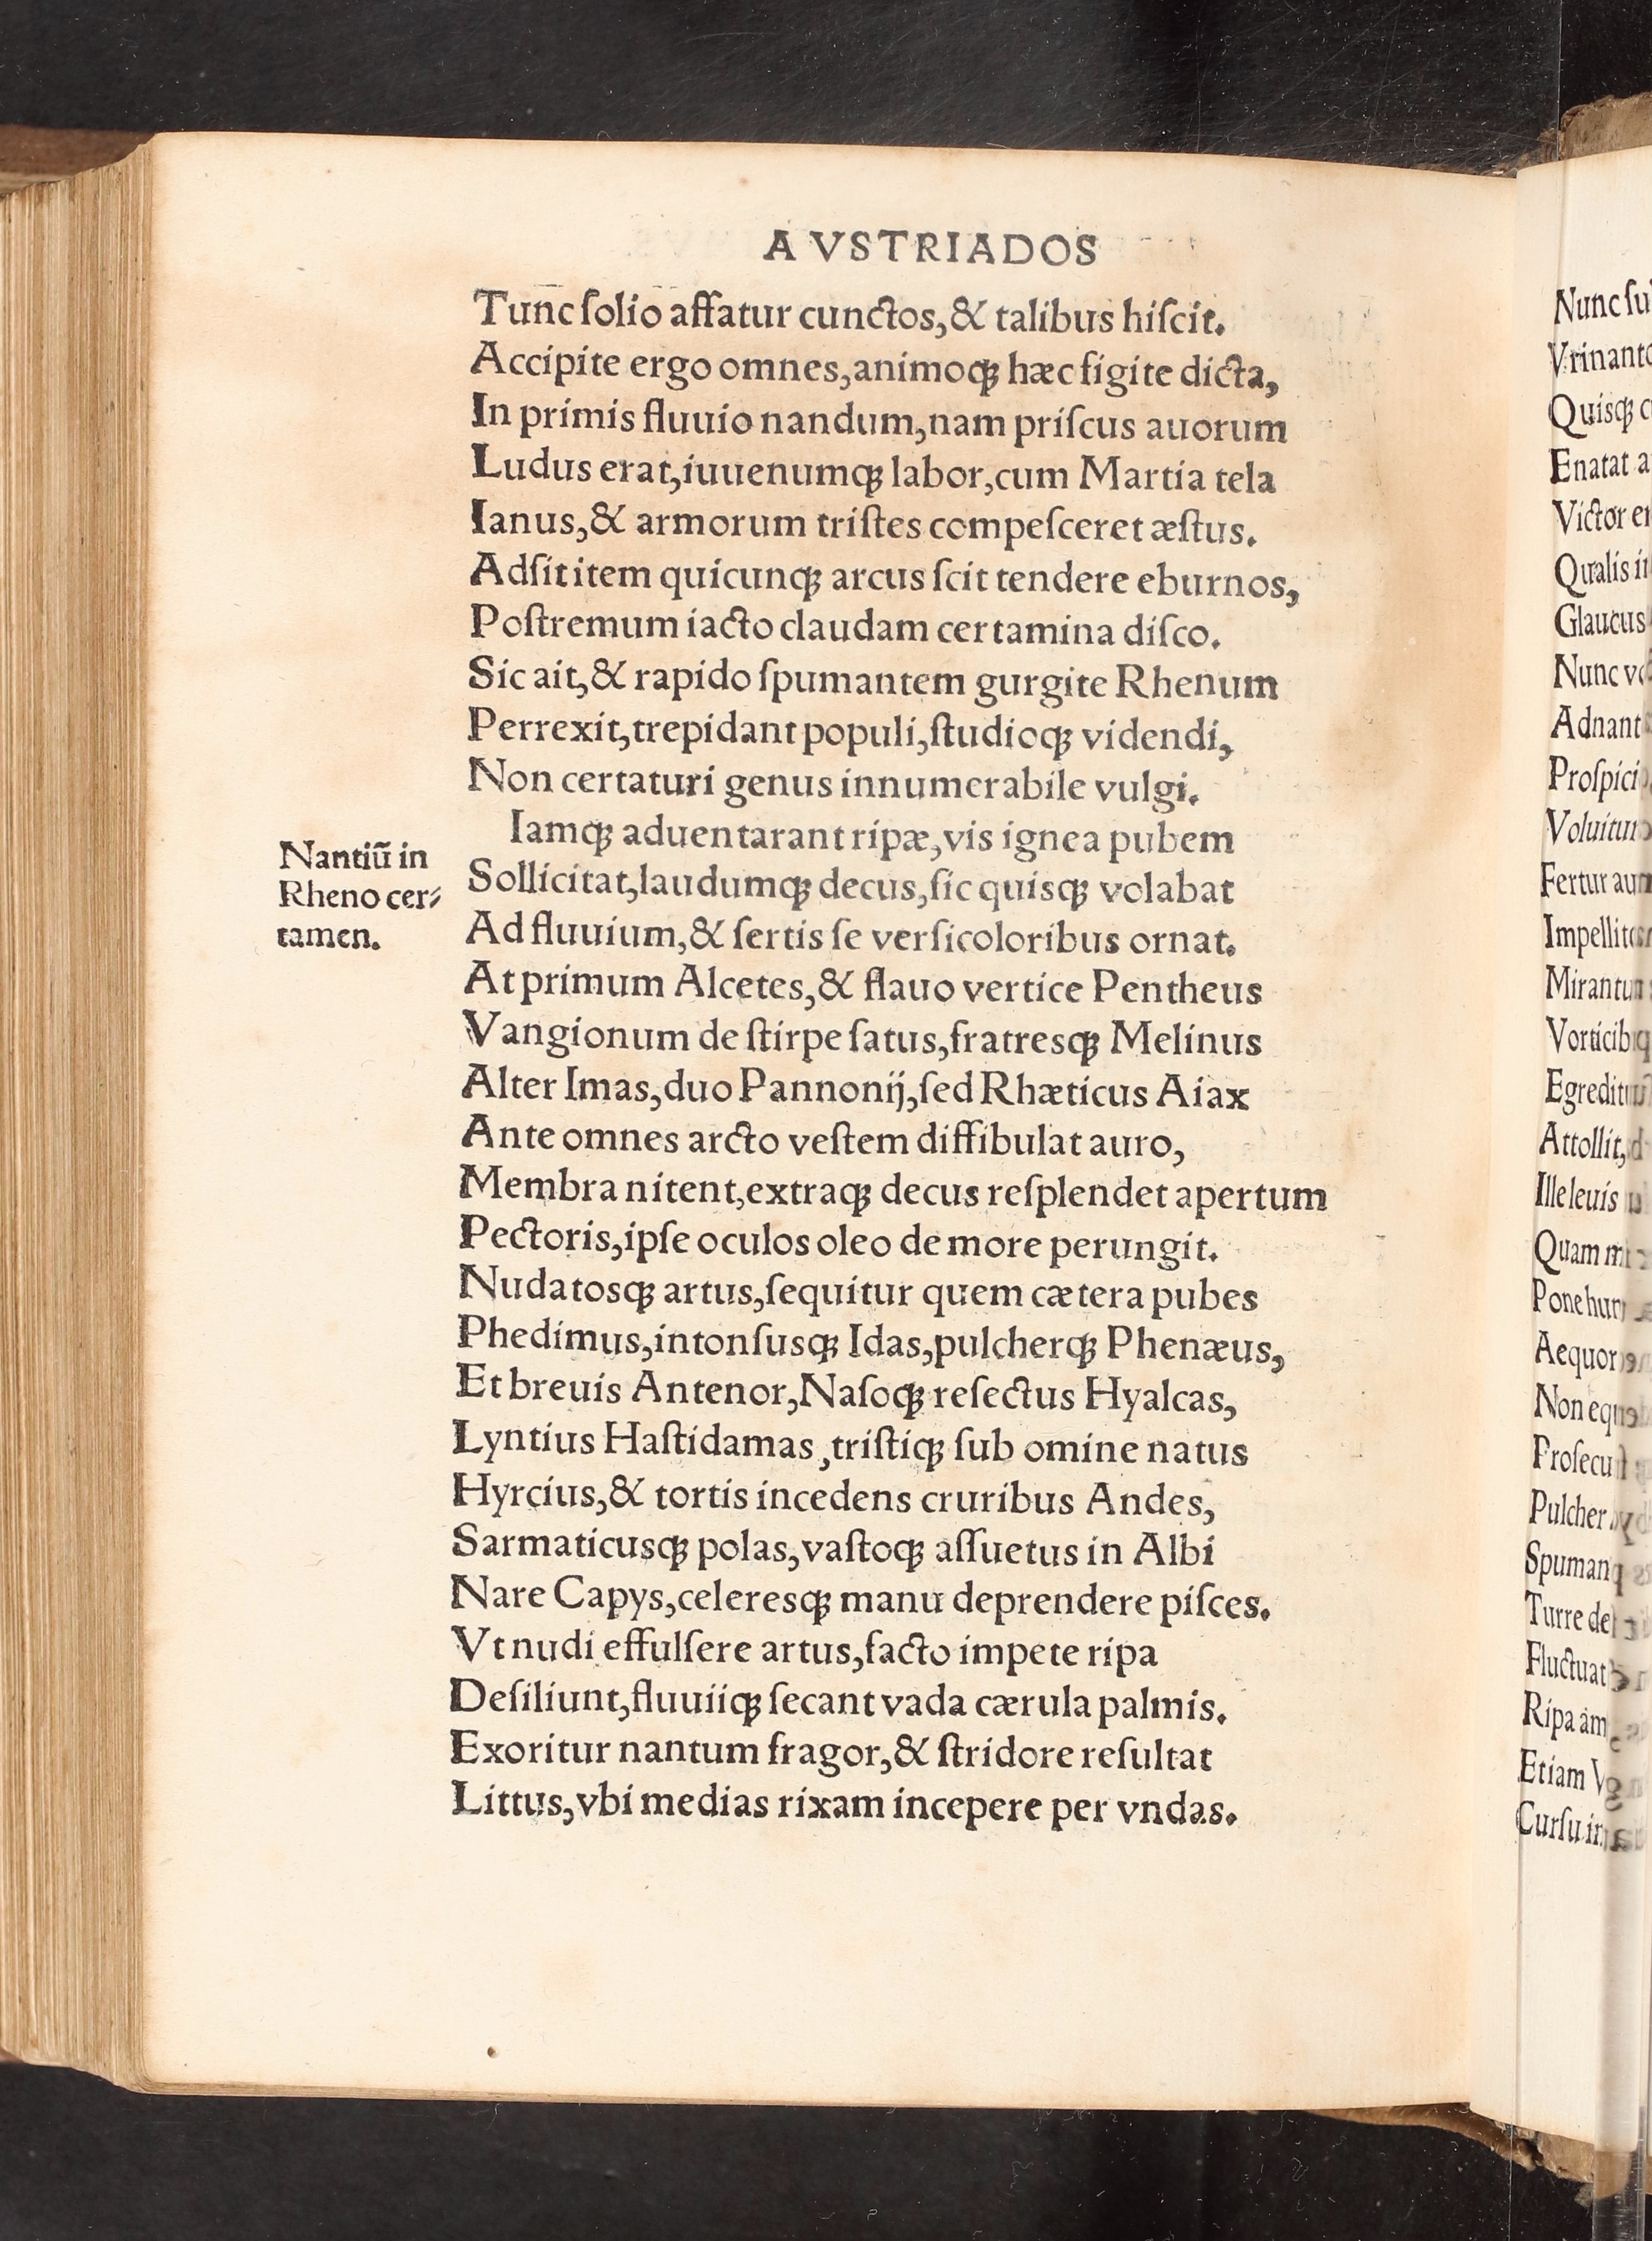 AVSTRIADOS
Tunc ſolio affatur cunctos,& talibus hiſcit.
Accipite ergo omnes,animoqꝫ hæc figite dicta,
In primis fluuio nandum,nam priſcus auorum
Ludus erat,iuuenumqꝫ labor,cum Martia tela
Ianus,& armorum triſtes compeſceret æſtus.
Adſit item quicunqꝫ arcus ſcit tendere eburnos,
Poſtremum iacto claudam certamina diſco.
Sic ait,& rapido ſpumantem gurgite Rhenum
Perrexit,trepidant populi,ſtudioqꝫ videndi,
Non certaturi genus innumerabile vulgi.
Iamqꝫ aduentarant ripæ,vis ignea pubem
Sollicitat,laudumqꝫ decus,ſic quisqꝫ volabat
Ad fluuium,& ſertis ſe verſicoloribus ornat.
At primum Alcetes,& flauo vertice Pentheus
Vangionum de ſtirpe ſatus,fratresqꝫ Melinus
Alter Imas,duo Pannonij,ſed Rhæticus Aiax
Ante omnes arcto veſtem diffibulat auro,
Membra nitent,extraqꝫ decus reſplendet apertum
Pectoris,ipſe oculos oleo de more perungit.
Nudatosqꝫ artus,ſequitur quem cætera pubes
Phedimus,intonſusqꝫ Idas,pulcherqꝫ Phenæus,
Et breuis Antenor,Naſoqꝫ reſectus Hyalcas,
Lyntius Haſtidamas,triſtiqꝫ ſub omine natus
Hyrcius,& tortis incedens cruribus Andes,
Sarmaticusqꝫ polas,vaſtoqꝫ aſſuetus in Albi
Nare Capys,celeresqꝫ manu deprendere piſces.
Vt nudi effulſere artus,facto impete ripa
Deſiliunt,fluuiiqꝫ ſecant vada cærula palmis.
Exoritur nantum fragor,& ſtridore reſultat
Littus,vbi medias rixam incepere per vndas.
Nantiū in
Rheno cer⸗
tamen.
Nunc
Quisqꝫ
Enatat
Victor
Qualis
Glaucus
Nunc
Adnant
Fertur
Attollit,
Ille leuis
Quam
Pulcher
Turre
Fluctuat
Ripa
Etiam